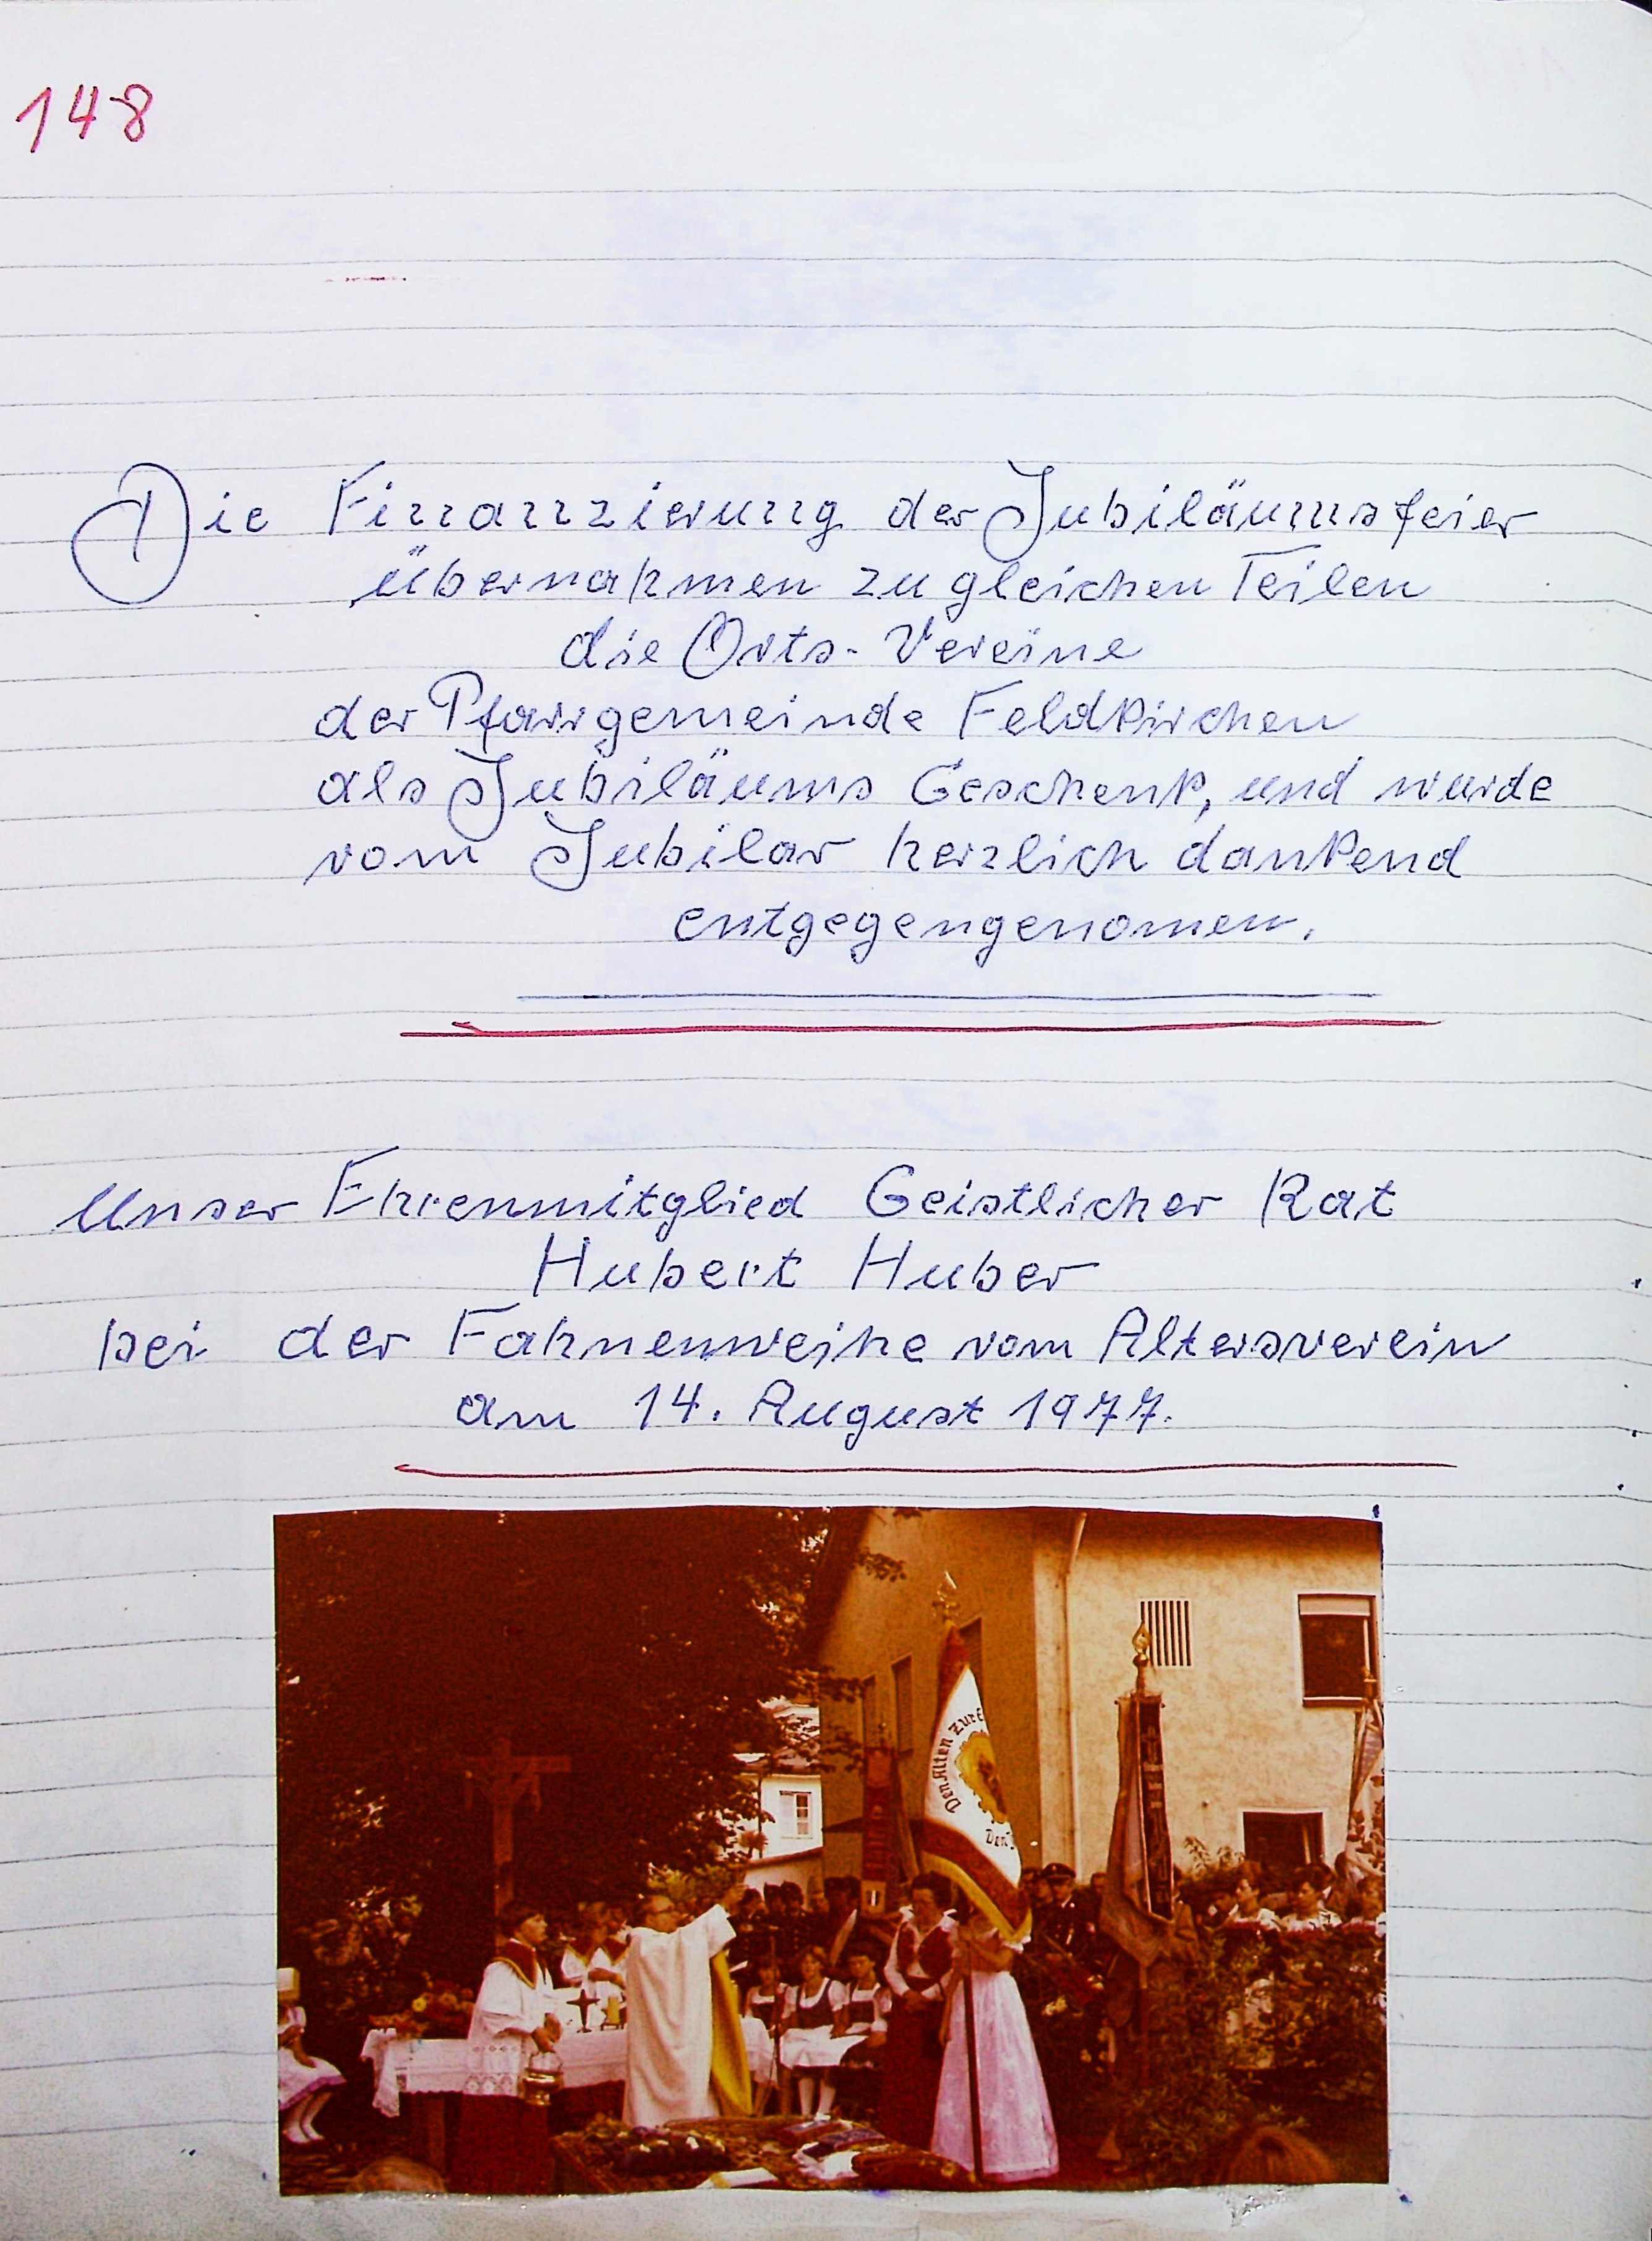 148
Die Finanzierung der Jubiläumsfeier
übernahmen zu gleichen Teilen
die Orts-Vereine
der Pfarrgemeinde Feldkirchen
als Jubiläums Geschenk, und wurde
vom Jubilar herzlich dankend
entgegengenomen.
Unser Ehrenmitglied Geistlicher Rat
Hubert Huber
bei der Fahnenweihe vom Altersverein
am 14. August 1977.
Den Alten zur
Den